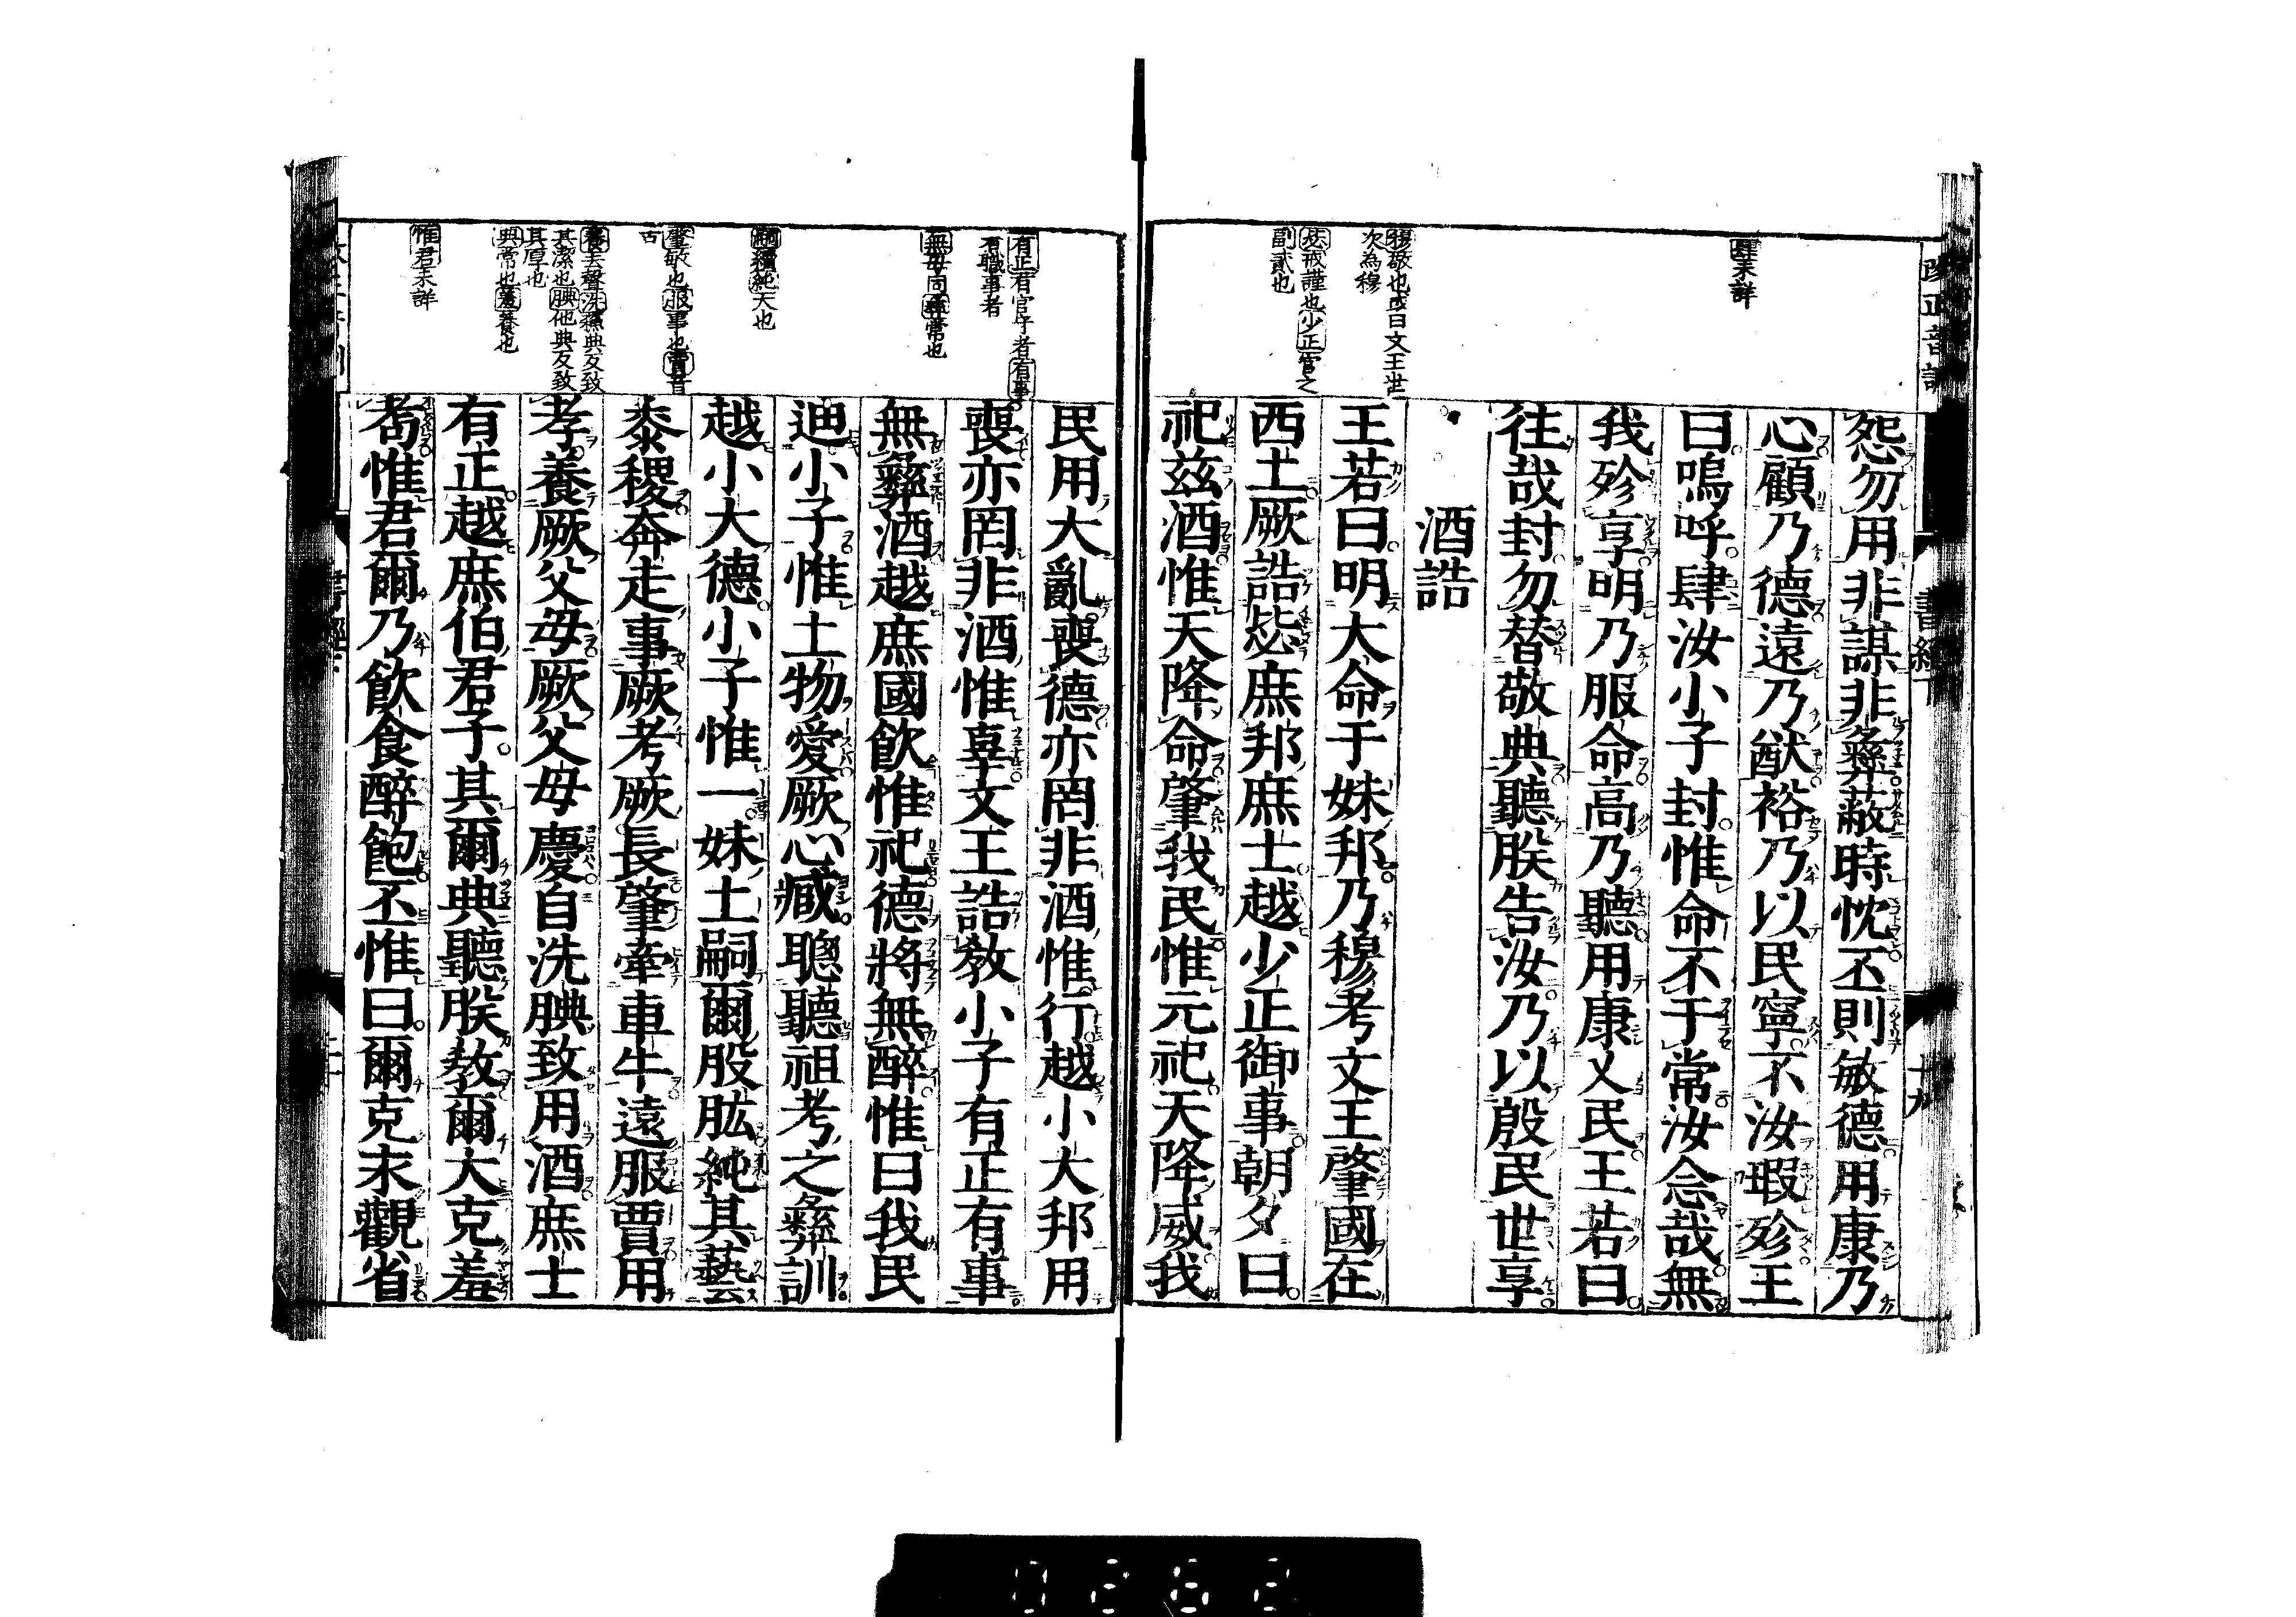 改正音訓
書經下
十九
肆未詳
穆敬也或曰文王世
次為穆
毖戒謹也少正官之
副貳也
怨勿用非謀非彝蔽時忱丕則敏德用康乃
心顧乃德遠乃猷裕乃以民寧不汝瑕殄王
曰嗚呼肆汝小子封惟命不于常汝念哉無
我殄享明乃服命高乃聽用康乂民王若曰
往哉封勿替敬典聽朕告汝乃以殷民世享
酒誥
王若曰明大命于妹邦乃穆考文王肇國在
西土厥誥毖庶邦庶士越少正御事朝夕曰
祀茲酒惟天降命肇我民惟元祀天降威我
有正有官守者有事
有職事者
無毋同彝常也
嗣續純大也
肇敏也服事也賈音
古
養去聲洗蘇典反致
其潔也腆他典反致
其厚也
典常也羞養也
惟君未詳
民用大亂喪德亦罔非酒惟行越小大邦用
喪亦罔非酒惟辜文王誥教小子有正有事
無彝酒越庶國飲惟祀德將無醉惟曰我民
迪小子惟土物愛厥心臧聰聽祖考之彝訓
越小大德小子惟一妹土嗣爾股肱純其藝
黍稷奔走事厥考厥長肇牽車牛遠服賈用
孝養厥父母厥父母慶自洗腆致用酒庶士
有正越庶伯君子其爾典聽朕教爾大克羞
耇惟君爾乃飲食醉飽丕惟曰爾克永觀省
書經下
二十
0262